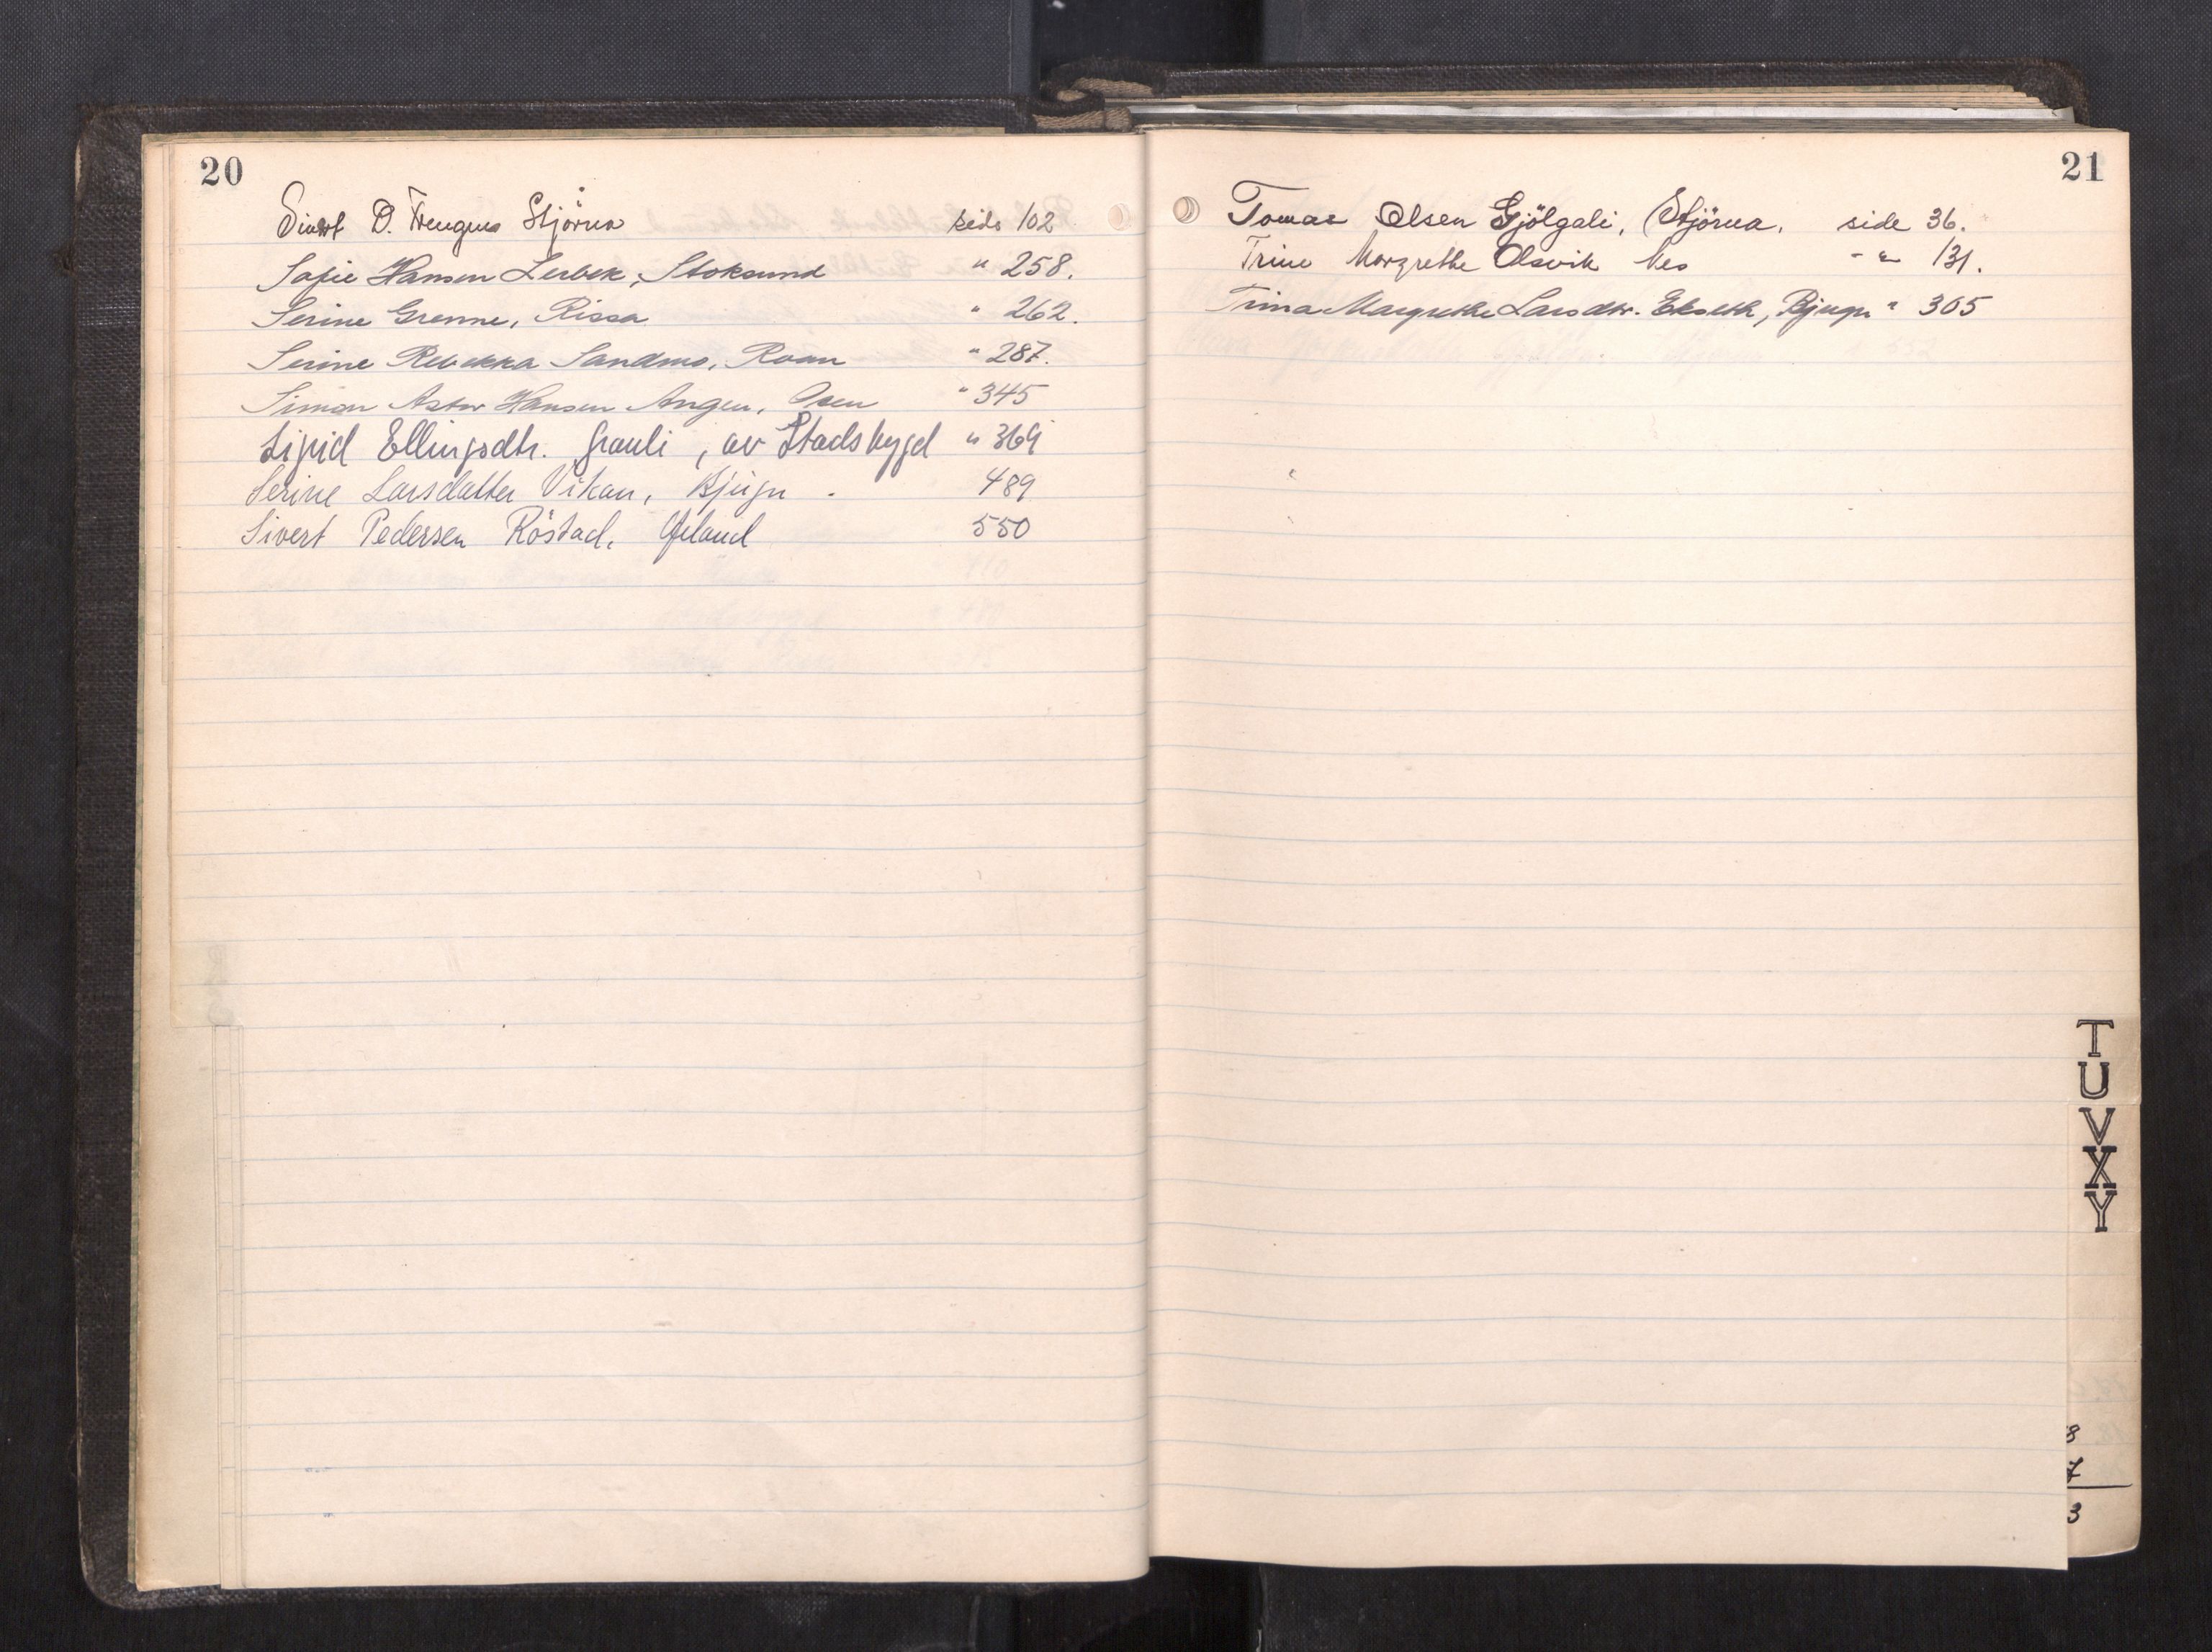 20
Sivert O. Frengen Stjörna side 102
Sofie Hansen Lerbek, Stoksund " 258.
Serine Grenne, Rissa " 262.
Serine Rebekka Sandmo, Roan " 287.
Simon Astor Hansen Angen, Osen " 345
Sigrid Ellingsdtr. Grauli, av Stadsbygd " 369
Serine Larsdatter Vikan, Bjugn. 489
Sivert Pedersen Röstad, Ørland 550
21
Tomas Olsen Gjölgali, Stjörna, side 36.
Trine Margrethe Olsvik Nes - " 131.
Trina Margrethe Larsdtr. Ekseth, Bjugn " 305
T
U
V
X
Y
8
7
3